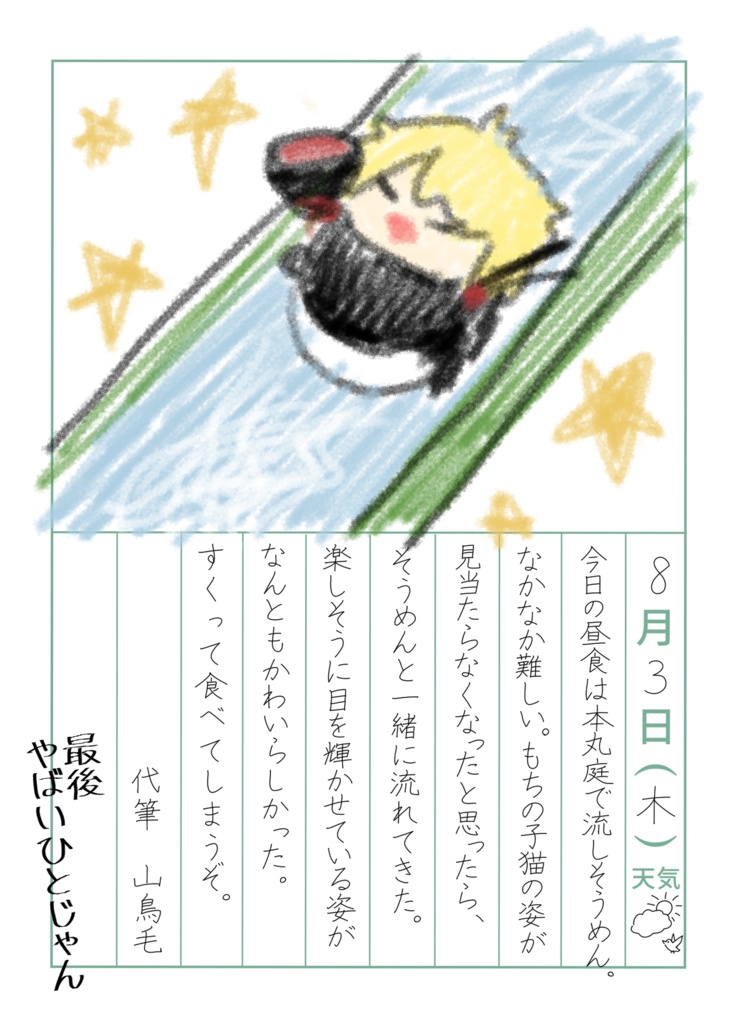 8月3日(木)天気
今日の昼食は本丸庭で流しそうめん。
なかなか難しい。もちの子猫の姿が
見当たらなくなったと思ったら、
そうめんと一緒に流れてきた。
楽しそうに目を輝かせている姿が
なんともかわいらしかった。
すくって食べてしまうぞ。
代筆 山鳥毛
最後
やばいひとじゃん